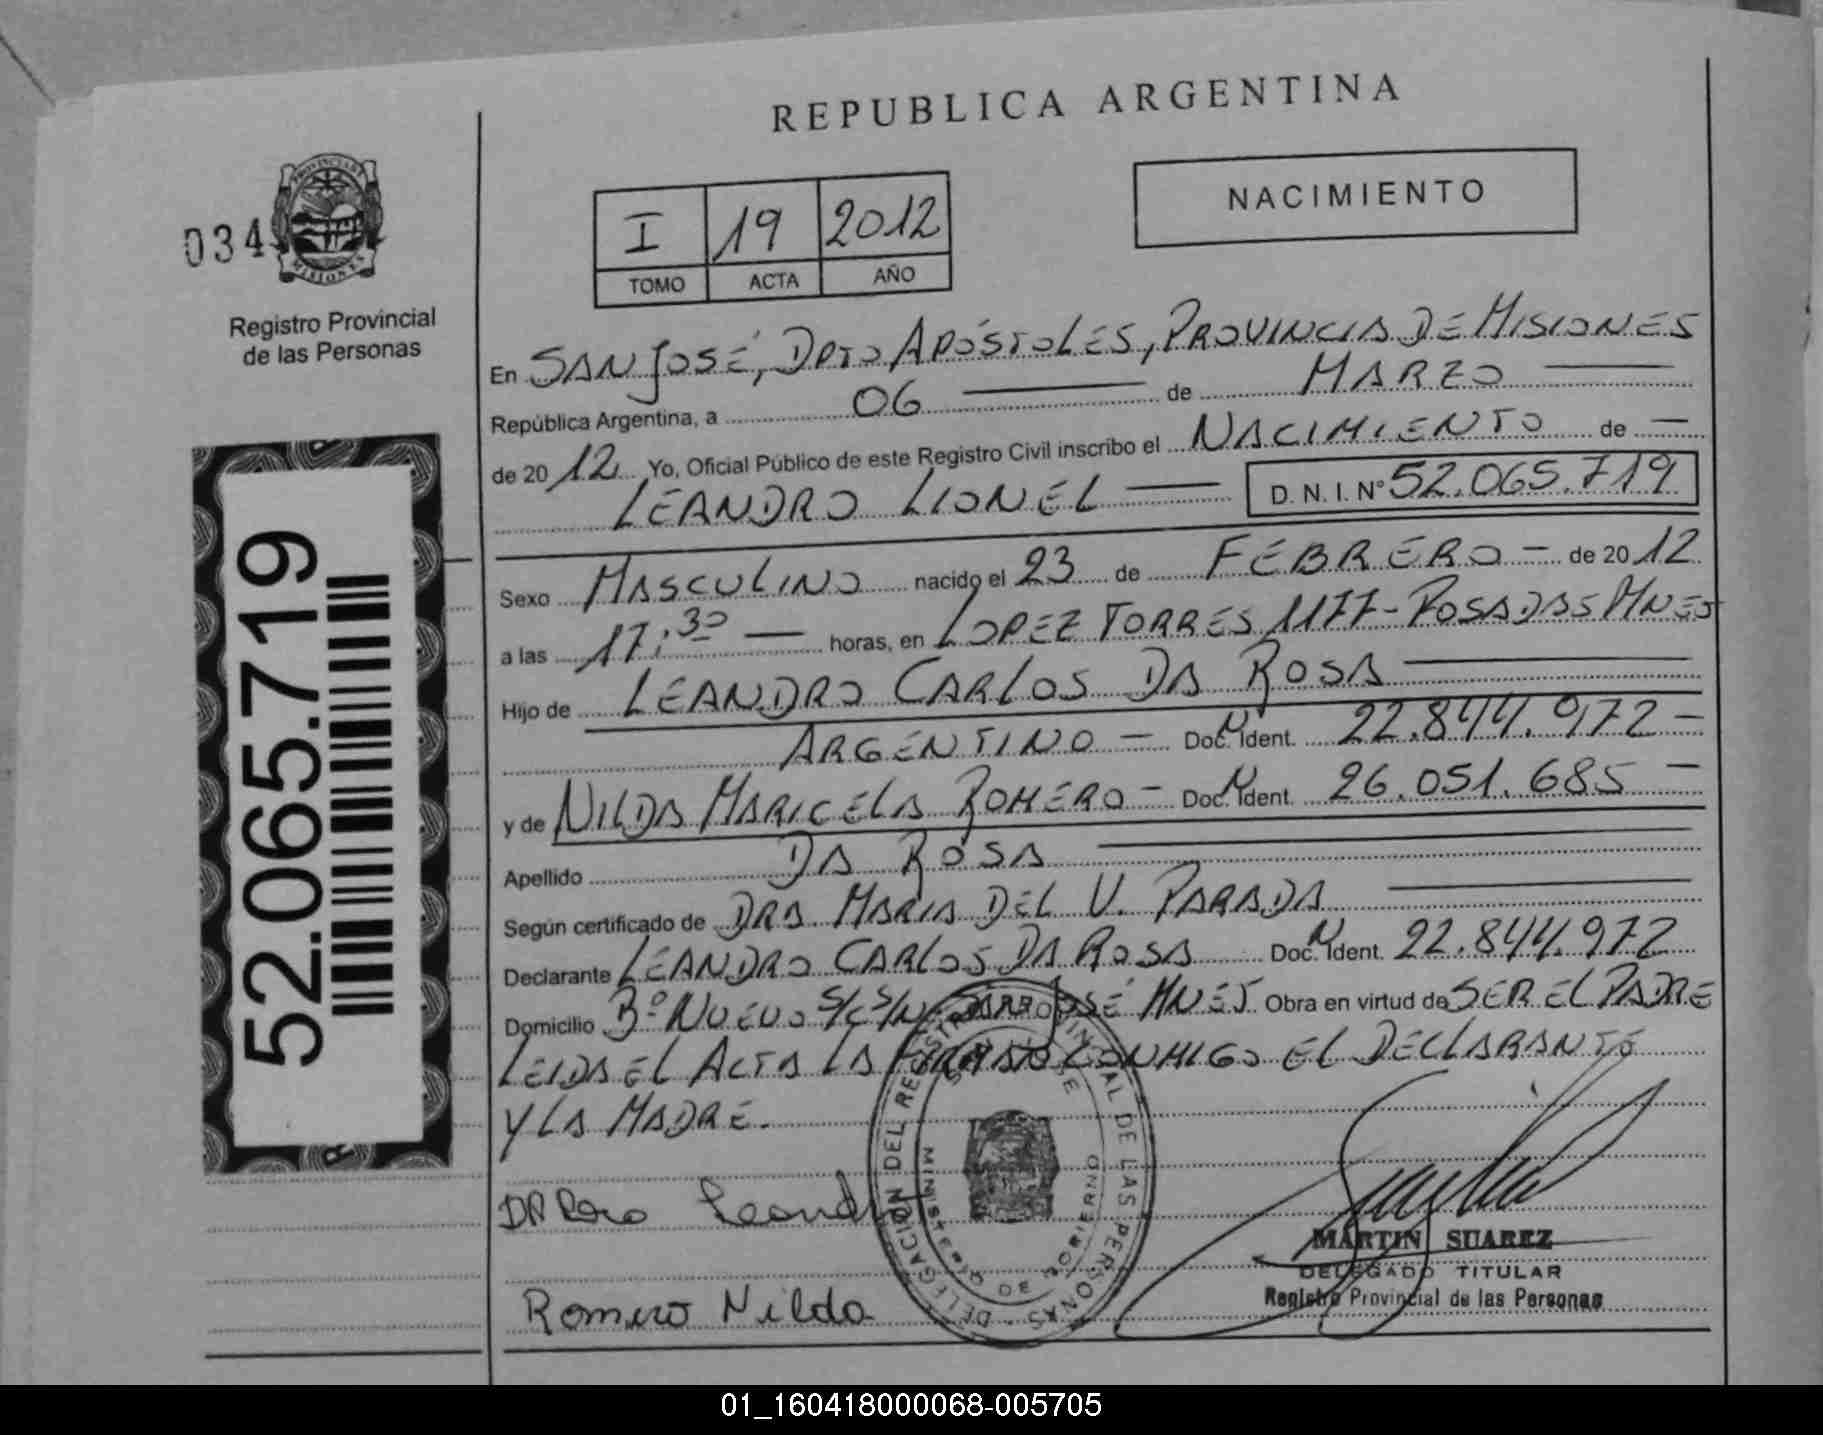 REPUBLICA ARGENTINA
NACIMIENTO
PROVINCIA DE
MISIONES
034
Registro Provincial
de las Personas
I 19 2012
TOMO ACTA AÑO
En SAN JOSÉ, DPTO APÓSTOLES, PROVINCIA DE MISIONES
República Argentina, a 06 de MARZO
de 20 12 Yo, Oficial Público de este Registro Civil inscribo el NACIMIENTO de
LEANDRO LIONEL D. N. I. N° 52.065.719
Sexo MASCULINO nacido el 23 de FEBRERO de 20 12
a las 17:30 horas, en LOPEZ TORRES 1177 - POSADAS MNES
Hijo de LEANDRO CARLOS DA ROSA
ARGENTINO - Doc. N Ident. 22.844.972 -
y de NILDA MARICELA ROMERO - Doc. N Ident. 26.051.685 -
Apellido DA ROSA
Según certificado de DRA MARIA DEL V. PARADA
Declarante LEANDRO CARLOS DA ROSA Doc. N Ident. 22.844.972
Domicilio B° NUEVO S/C S/N JOSÉ MNES Obra en virtud de SER EL PADRE
LEIDA EL ACTA LA FIRMAN CONMIGO EL DECLARANTE
Y LA MADRE.
DA Rosa Leandro
Romero Nilda
DELEGACION DEL REGISTRO PROVINCIAL DE LAS PERSONAS
SAN JOSE
MINISTERIO DE GOBIERNO
MARTIN SUAREZ
DELEGADO TITULAR
Registro Provincial de las Personas
52.065.719
01_160418000068-005705